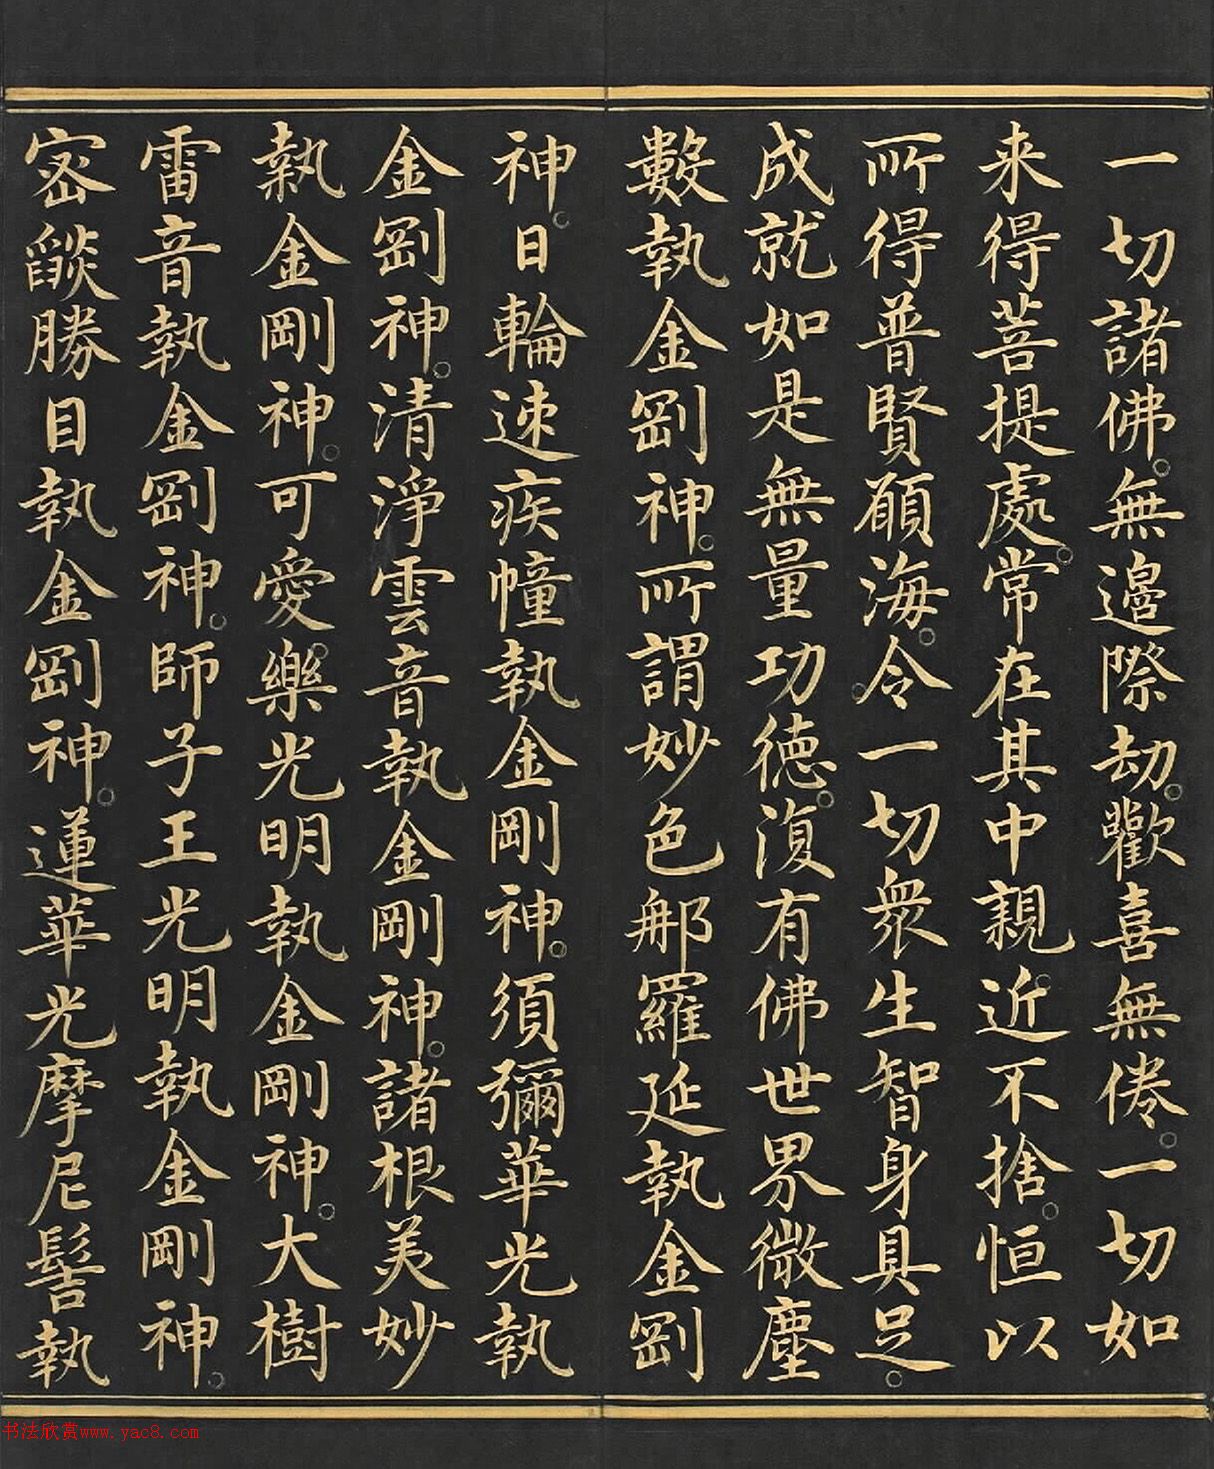 一切諸佛。無邊際劫。歡喜無倦。一切如
来得菩提處。常在其中親近。不捨。恒以
所得普賢願海。令。一切眾生智身具足。
成就如是無量功德。復有佛世界微塵
數執金剛神。所謂妙色那羅延執金剛
神。日輪速疾幢執金剛神。須彌華光執
金剛神。清淨雲音執金剛神。諸根美妙
執金剛神。可愛樂光明執金剛神。大樹
雷音執金剛神。師子王光明執金剛神。
密燄勝目執金剛神。蓮華光摩尼髻執
书法欣赏www.yac8.com